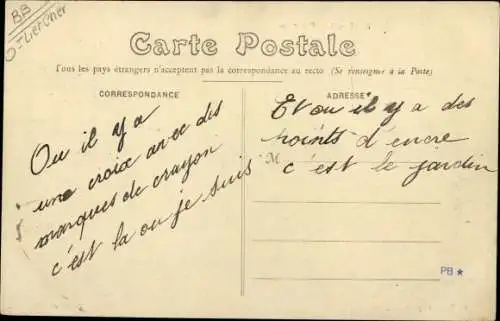 BB
O-Liet Cher
Carte Postale
Tous les pays étrangers n'acceptent pas la correspondance au recto (Se renseigner à la Poste)
CORRESPONDANCE
Ou il y a
une croix avec des
marques de crayon
c'est la ou je suis
ADRESSE
Et ou il y a des
points d'encre
M
c'est le jardin
PB ★